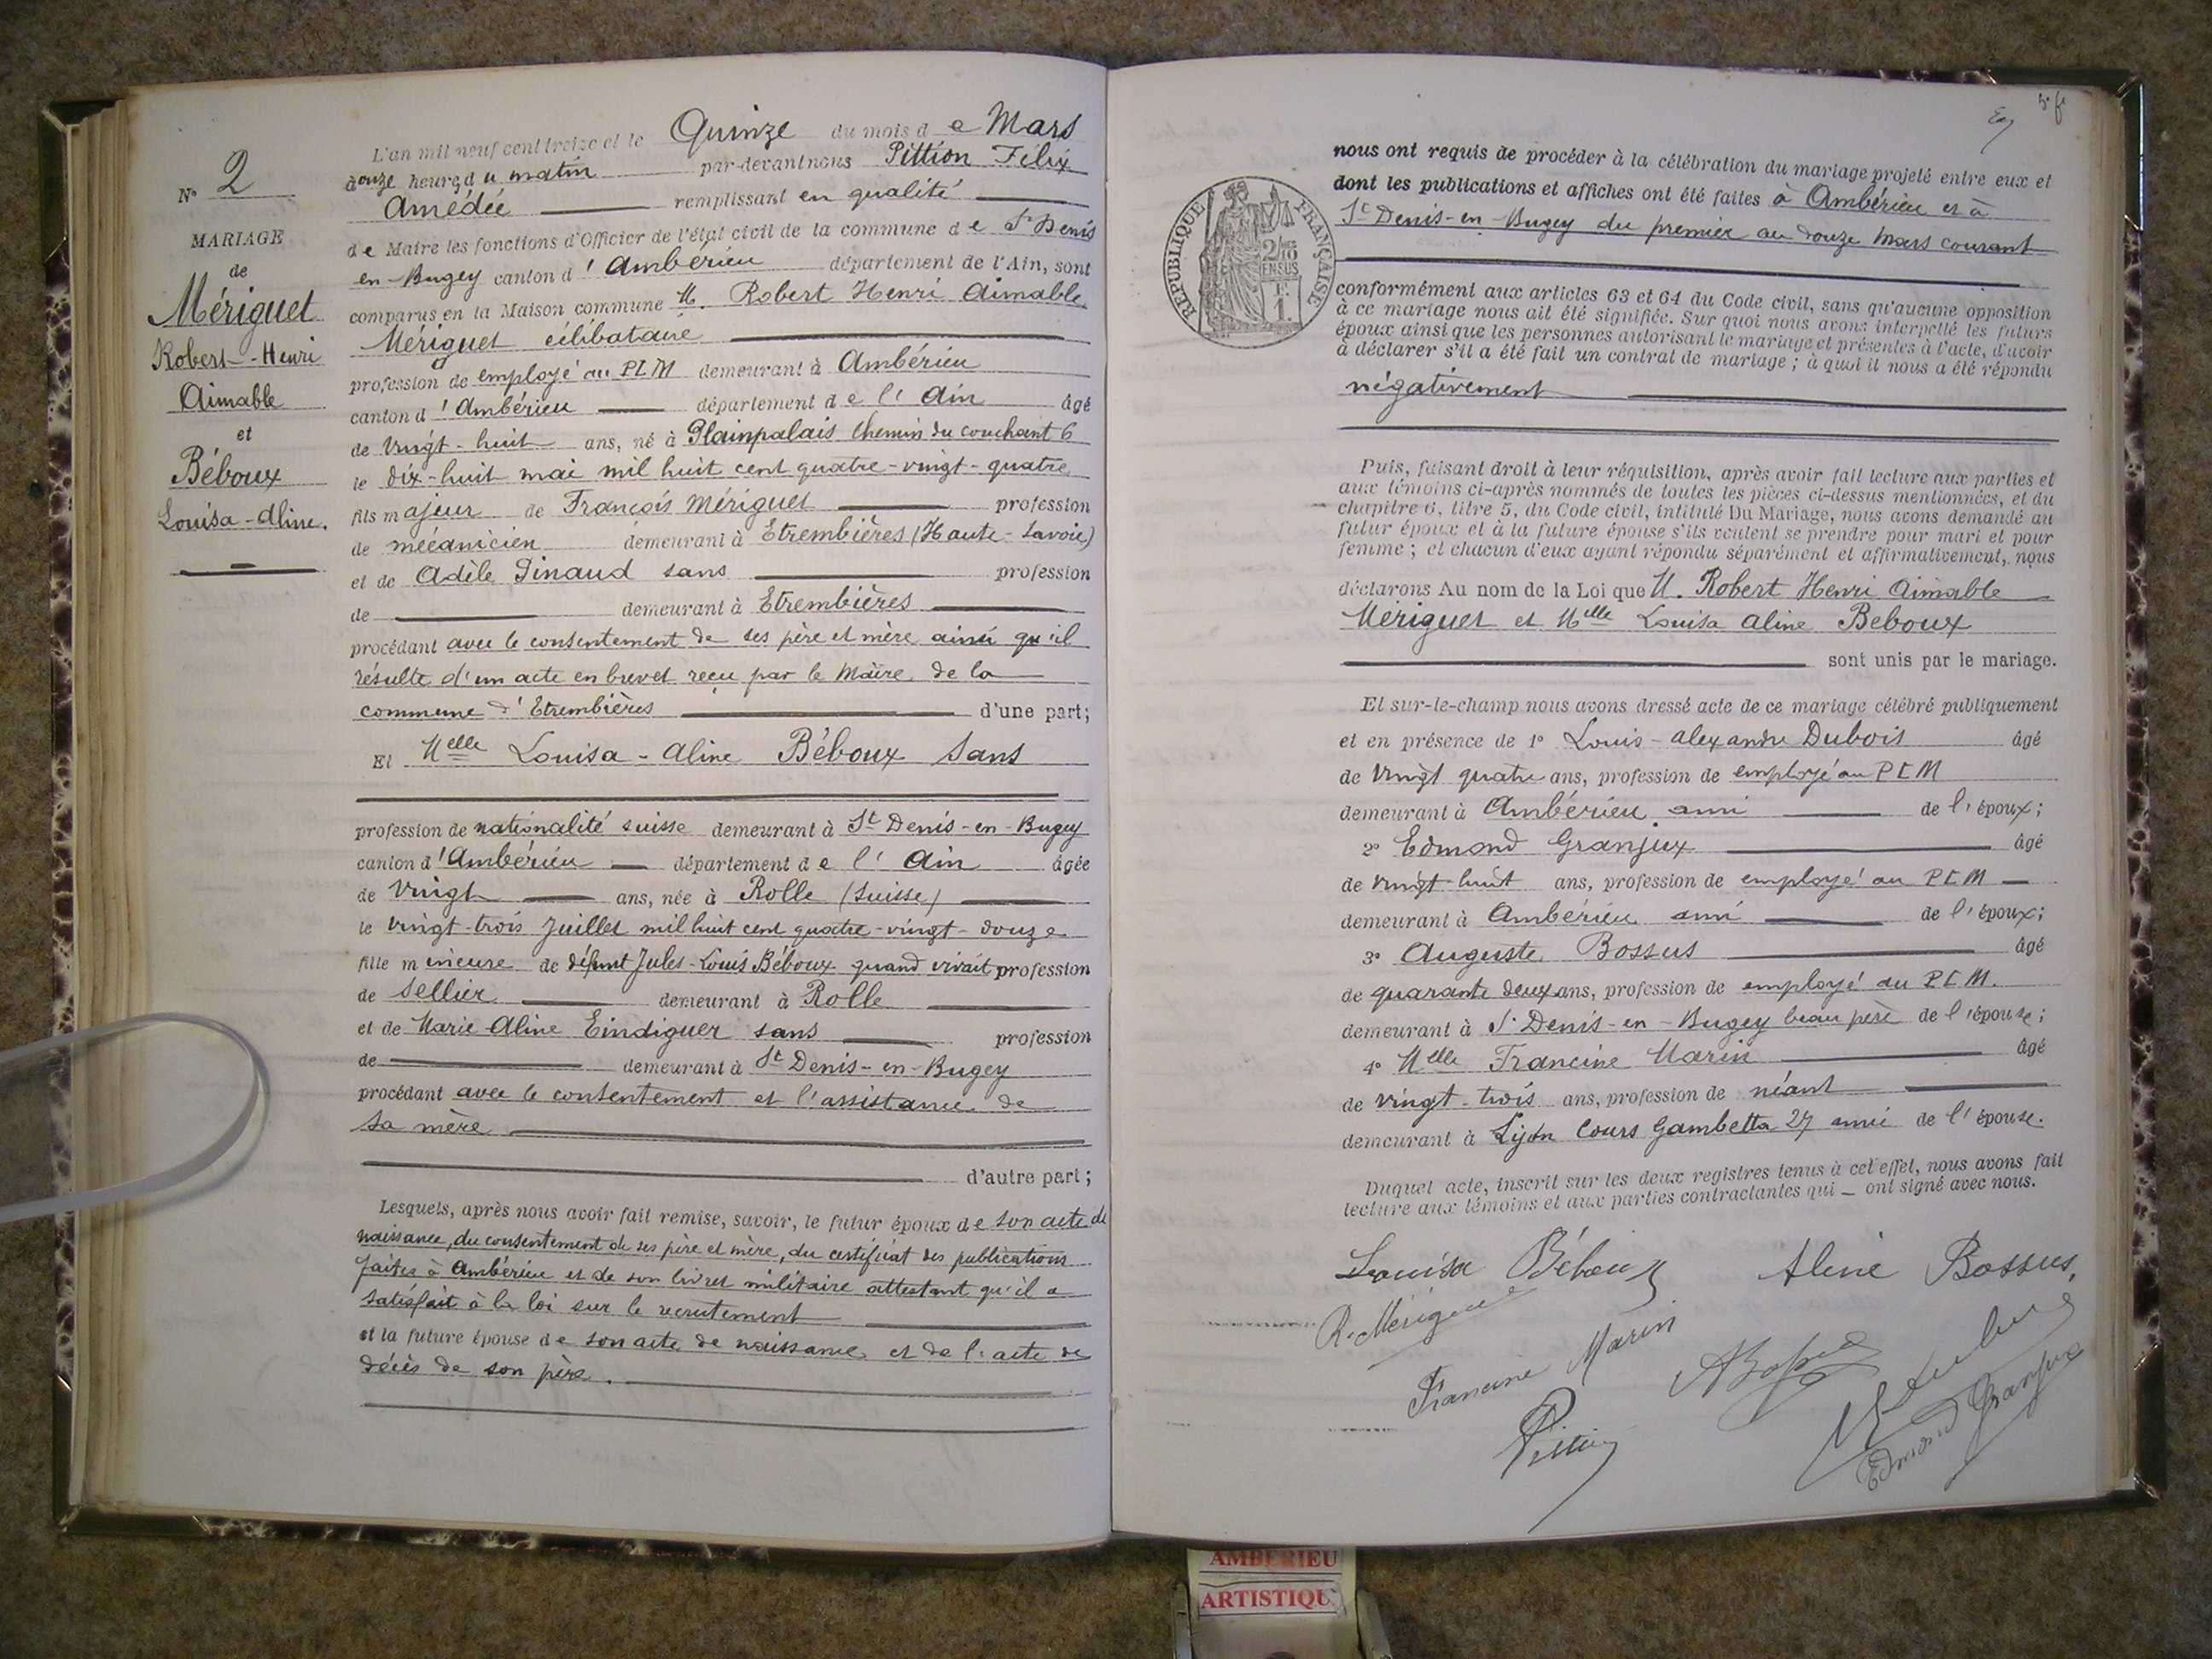 N° 2
MARIAGE
de
Mériguet
Robert-Henri
Aimable
et
Béboux
Louisa-Aline.
L'an mil neuf cent treize et le Quinze du mois de Mars
onze heures du matin par-devant nous Pittion Félix
Amédée remplissant en qualité
de Maire les fonctions d'Officier de l'état civil de la commune de St Denis
en-Bugey canton d'Ambérieu département de l'Ain, sont
comparus en la Maison commune M. Robert Henri Aimable
Mériguet célibataire
profession de employé au PLM demeurant à Ambérieu
canton d'Ambérieu département de l'Ain âgé
de vingt-huit ans, né à Plainpalais Chemin du couchant 6
le dix-huit mai mil huit cent quatre-vingt-quatre
fils majeur de François Mériguet profession
de mécanicien demeurant à Etrembières (Haute-Savoie)
et de Adèle Pinaud sans profession
de demeurant à Etrembières
procédant avec le consentement de ses père et mère ainsi qu'il
résulte d'un acte en brevet reçu par le Maire de la
commune d'Etrembières d'une part;
Et Melle Louisa-Aline Béboux sans
profession de nationalité suisse demeurant à St Denis-en-Bugey
canton d'Ambérieu département de l'Ain âgée
de vingt ans, née à Rolle (Suisse)
le vingt-trois Juillet mil huit cent quatre-vingt-douze
fille mineure de défunt Jules-Louis Béboux quand vivait profession
de sellier demeurant à Rolle
et de Marie-Aline Eindiguer sans profession
de demeurant à St Denis-en-Bugey
procédant avec le consentement et l'assistance de
sa mère
d'autre part;
Lesquels, après nous avoir fait remise, savoir, le futur époux de son acte de
naissance, du consentement de ses père et mère, du certificat des publications
faites à Ambérieu et de son livret militaire attestant qu'il a
satisfait à la loi sur le recrutement
et la future épouse de son acte de naissance et de l'acte de
décès de son père.
nous ont requis de procéder à la célébration du mariage projeté entre eux et
dont les publications et affiches ont été faites à Ambérieu et à
St Denis-en-Bugey du premier au douze Mars courant
RÉPUBLIQUE FRANÇAISE
2/10
EN SUS
1.
conformément aux articles 63 et 64 du Code civil, sans qu'aucune opposition
à ce mariage nous ait été signifiée. Sur quoi nous avons interpellé les futurs
époux ainsi que les personnes autorisant le mariage et présentes à l'acte, d'avoir
à déclarer s'il a été fait un contrat de mariage; à quoi il nous a été répondu
négativement
Puis, faisant droit à leur réquisition, après avoir fait lecture aux parties et
aux témoins ci-après nommés de toutes les pièces ci-dessus mentionnées, et du
chapitre 6, titre 5, du Code civil, intitulé Du Mariage, nous avons demandé au
futur époux et à la future épouse s'ils veulent se prendre pour mari et pour
femme; et chacun d'eux ayant répondu séparément et affirmativement, nous
déclarons Au nom de la Loi que M. Robert Henri Aimable
Mériguet et Melle Louisa Aline Beboux
sont unis par le mariage.
Et sur-le-champ nous avons dressé acte de ce mariage célébré publiquement
et en présence de 1° Louis-Alexandre Dubois âgé
de vingt quatre ans, profession de employé au PLM
demeurant à Ambérieu ami de l'époux;
2° Edmond Granjux âgé
de vingt-huit ans, profession de employé au PLM
demeurant à Ambérieu ami de l'époux;
3° Auguste Bossus âgé
de quarante deux ans, profession de employé au PLM.
demeurant à St Denis-en-Bugey beau père de l'épouse;
4° Melle Francine Marin âgé
de vingt-trois ans, profession de néant
demeurant à Lyon Cours Gambetta 27 amie de l'épouse.
Duquel acte, inscrit sur les deux registres tenus à cet effet, nous avons fait
lecture aux témoins et aux parties contractantes qui ont signé avec nous.
Louisa Béboux Aline Bossus.
R. Mériguet
Francine Marin
A Bossus
Dubois
Edmond Granjux
Pittion
AMBERIEU
ARTISTIQU